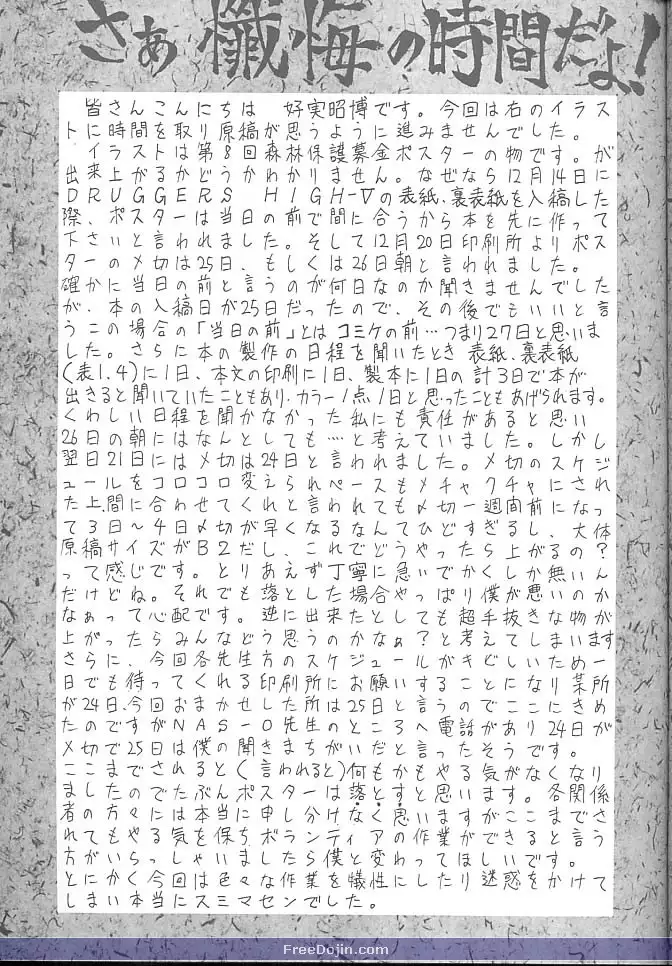 さぁ懺悔の時間だよ!
皆さんこんにちは 好実昭博です。今回は右のイラス
トに時間を取り原稿が思うように進みませんでした。
イラストは第8回森林保護募金ポスターの物です。が
出来上がるかどうかわかりません。なぜなら12月14日に
DRUGGERS HIGH-Vの表紙、裏表紙を入稿した
際、ポスターは当日の前で間に合うから本を先に作って
下さいと言われました。そして12月20日印刷所よりポス
ターの〆切は25日、もしくは26日朝と言われました。
確かに当日の前と言うのが何日なのか聞きませんでした
が、本の入稿日が25日だったので、その後でもいいと言
うこの場合の「当日の前」とはコミケの前…つまり27日と思いま
した。さらに本の製作の日程を聞いたとき 表紙、裏表紙
(表1.4)に1日、本文の印刷に1日、製本に1日の計3日で本が
出きると聞いていたこともあり、カラー1点1日と思ったこともあげられます。
くわしい日程を聞かなかった私にも責任があると思い
26日の朝にはなんとしても…と考えていました。しかし
翌日21日には〆切は24日と言われました。〆切のスケジ
ュールをコロコロ変えられペースもメチャクチャにされ
た上、間に合わせてくれと言われても〆切一週間前になっ
て3日～4日〆切が早くなるなんてひどすぎるし、大体
原稿サイズがB2だし、これでどうやったら上がるの?
って感じです。とりあえず丁寧に急いでかくしか無いん
だけどね。それでも落とした場合やっぱり僕が悪いのか
なぁって心配です。逆に出来たとしても超手抜きな物が
上がったらみんなどう思うのかなぁ?と考えてしまいます
さらに、今回各先生方のスケジュールがきびしいため一
日でも待ってくれる印刷所にお願いすることになり某所
が24日、今回おまかせした所は25日と言うのでここにきめ
たのですがNAS-O先生のところへ電話があり24日が
〆切で25日は僕の聞きまちがいだと言ったそうです。
ここまでされると(言われると)何もかもやる気がなくなり
ましたのでたぶんポスターは落とすと思います。各関係
者の方々には本当に申し分けなく思いますがここまでさ
れてもやる気を保ちボランティアの作業ができると言う
方がいらっしゃいましたら僕と変わってほしいです。
とにかく今回は色々な作業を犠性にしたり迷惑をかけて
しまい本当にスミマセンでした。
FreeDojin.com